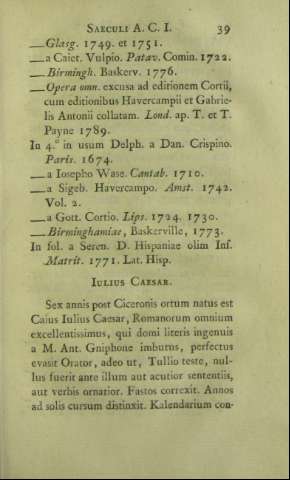 SAECULI A. C. I. 39
—Glasg. 1749. et 1751.
—a Caiet. Vulpio. Patav. Comin. 1722.
—Birmingh. Baskerv. 1776.
—Opera omn. excusa ad editionem Cortii,
cum editionibus Havercampii et Gabrie-
lis Antonii collatam. Lond. ap. T. et T.
Payne 1789.
In 4.° in usum Delph. a Dan. Crispino.
Paris. 1674.
—a Iosepho Wase. Cantab. 1710.
—a Sigeb. Havercampo. Amst. 1742.
Vol. 2.
—a Gott. Cortio. Lips. 1724. 1730.
—Birminghamiae, Baskerville, 1773.
In fol. a Seren. D. Hispaniae olim Inf.
Matrit. 1771. Lat. Hisp.
IULIUS CAESAR.
Sex annis post Ciceronis ortum natus est
Caius Iulius Caesar, Romanorum omnium
excellentissimus, qui domi literis ingenuis
a M. Ant. Gniphone imbutus, perfectus
evasit Orator, adeo ut, Tullio teste, nul-
lus fuerit ante illum aut acutior sententiis,
aut verbis ornatior. Fastos correxit. Annos
ad solis cursum distinxit. Kalendarium con-